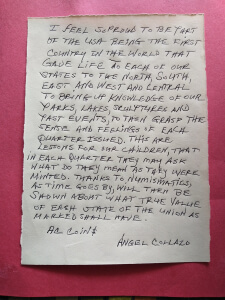 I FEEL SO PROUD TO BE PART
OF THE USA BEING THE FIRST
COUNTRY IN THE WORLD THAT
GAVE LIFE TO EACH OF OUR
STATES TO THE NORTH, SOUTH,
EAST AND WEST AND CENTRAL
TO BRING UP KNOWLEDGE OF OUR
PARKS, LAKES, SCULPTURES AND
PAST EVENTS, TO THEN GRASP THE
SENSE AND FEELINGS OF EACH
QUARTER ISSUED. THIS ARE
LESSONS FOR OUR CHILDREN, THAT
IN EACH QUARTER THEY MAY ASK
WHAT DO THEY MEAN AS THEY WERE
MINTED. THANKS TO NUMISMATICS,
AS TIME GOES BY, WILL THEN BE
SHOWN ABOUT WHAT TRUE VALUE
OF EACH STATE OF THE UNION AS
MARKED SHALL HAVE.
AC COIN$
ANGEL COLLAZO